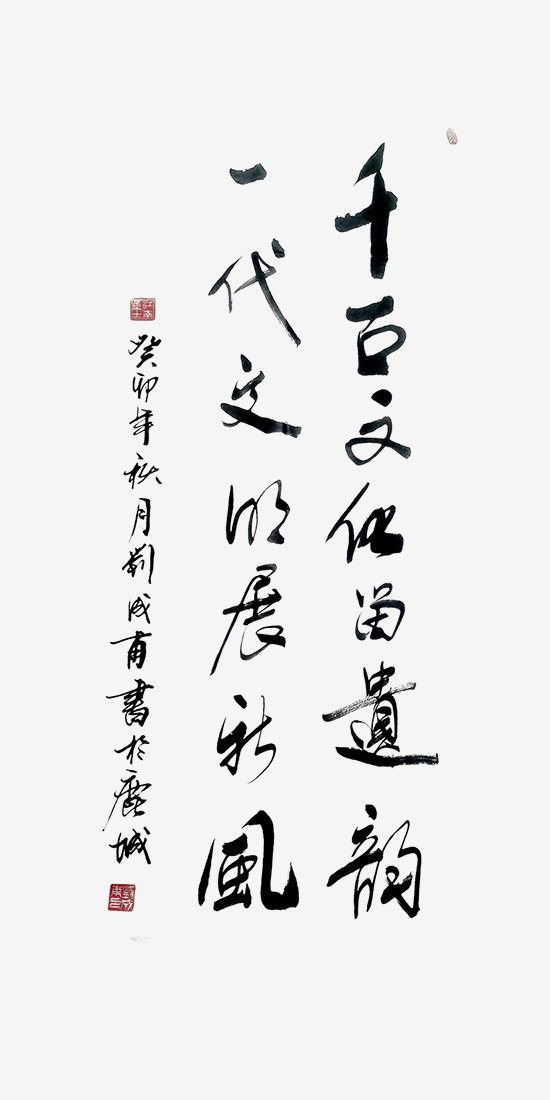 千古文化留遺韻
一代文明展新風
癸卯年秋月劉成甫書於鹿城